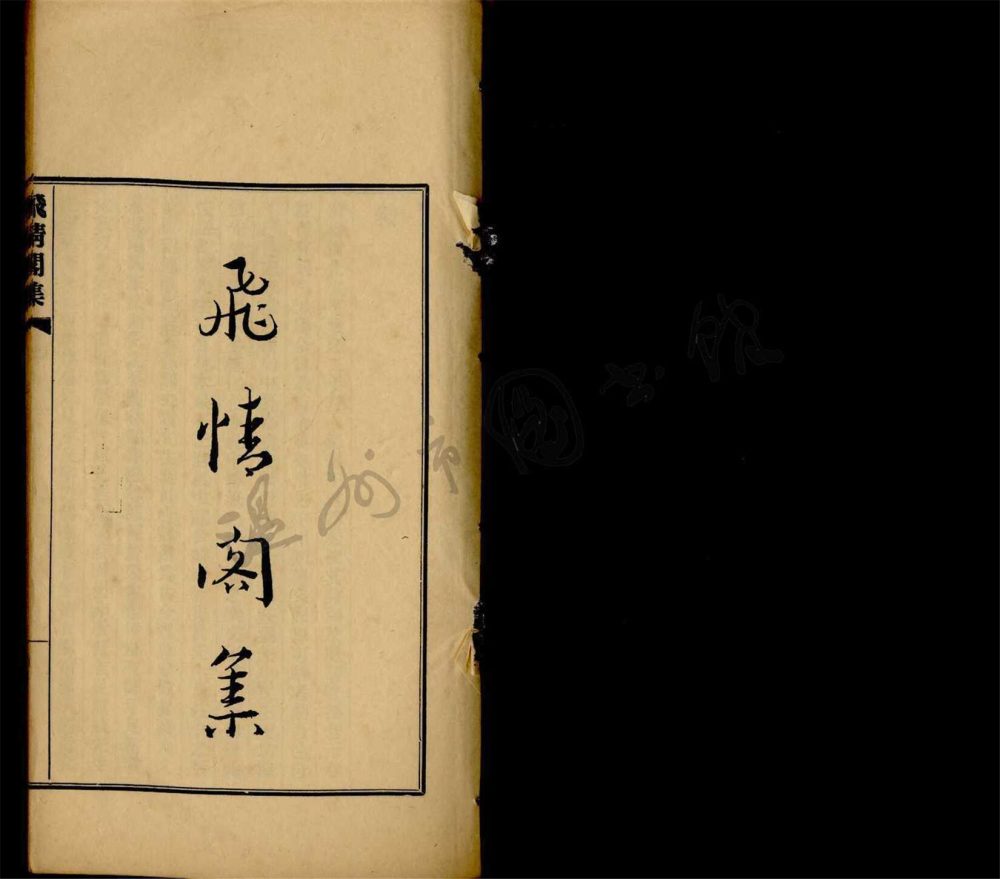 飛情閣集
飛情閣集
温州市圖書館